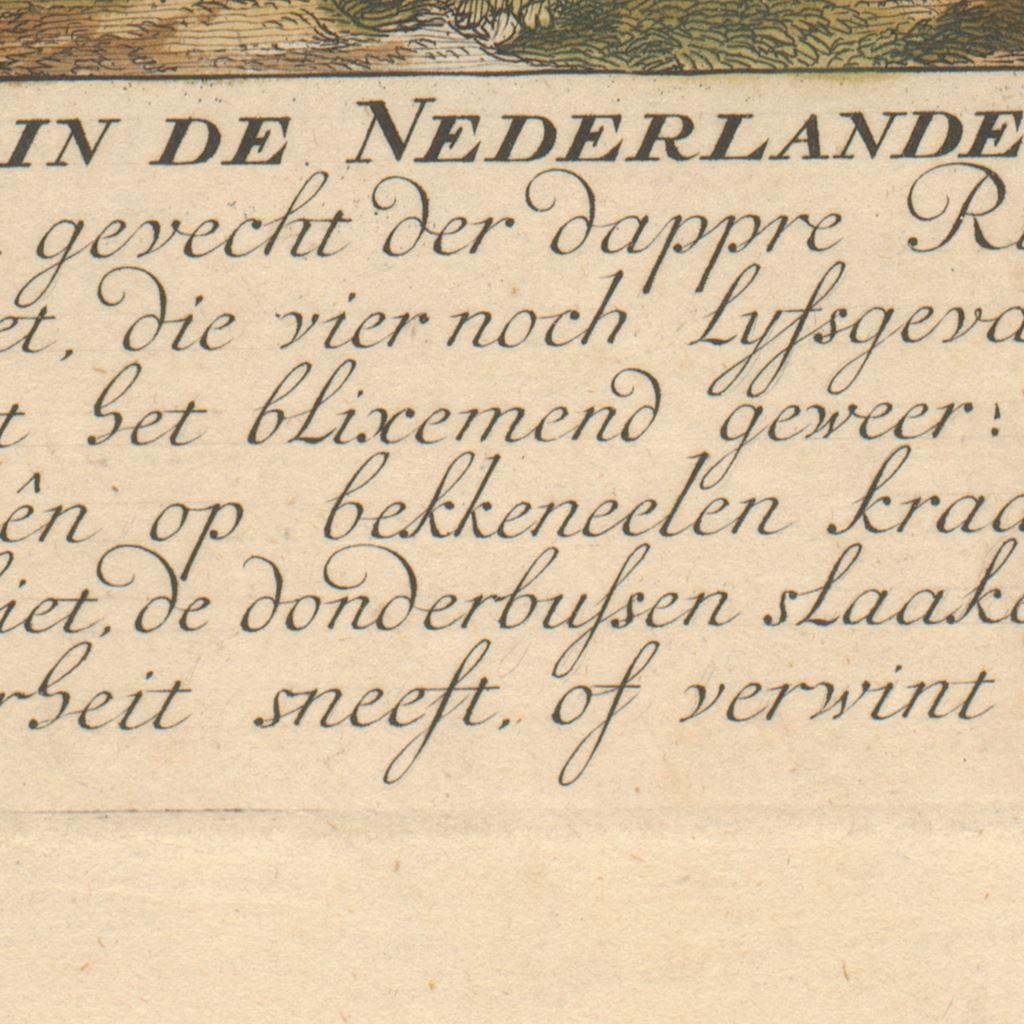 IN DE NEDERLANDE
gevecht der dappre R
et, die vier noch Lyfsgeva
t het blixemend geweer:
ên op bekkeneelen kraa
iet, de donderbussen slaake
rheit sneeft, of verwint